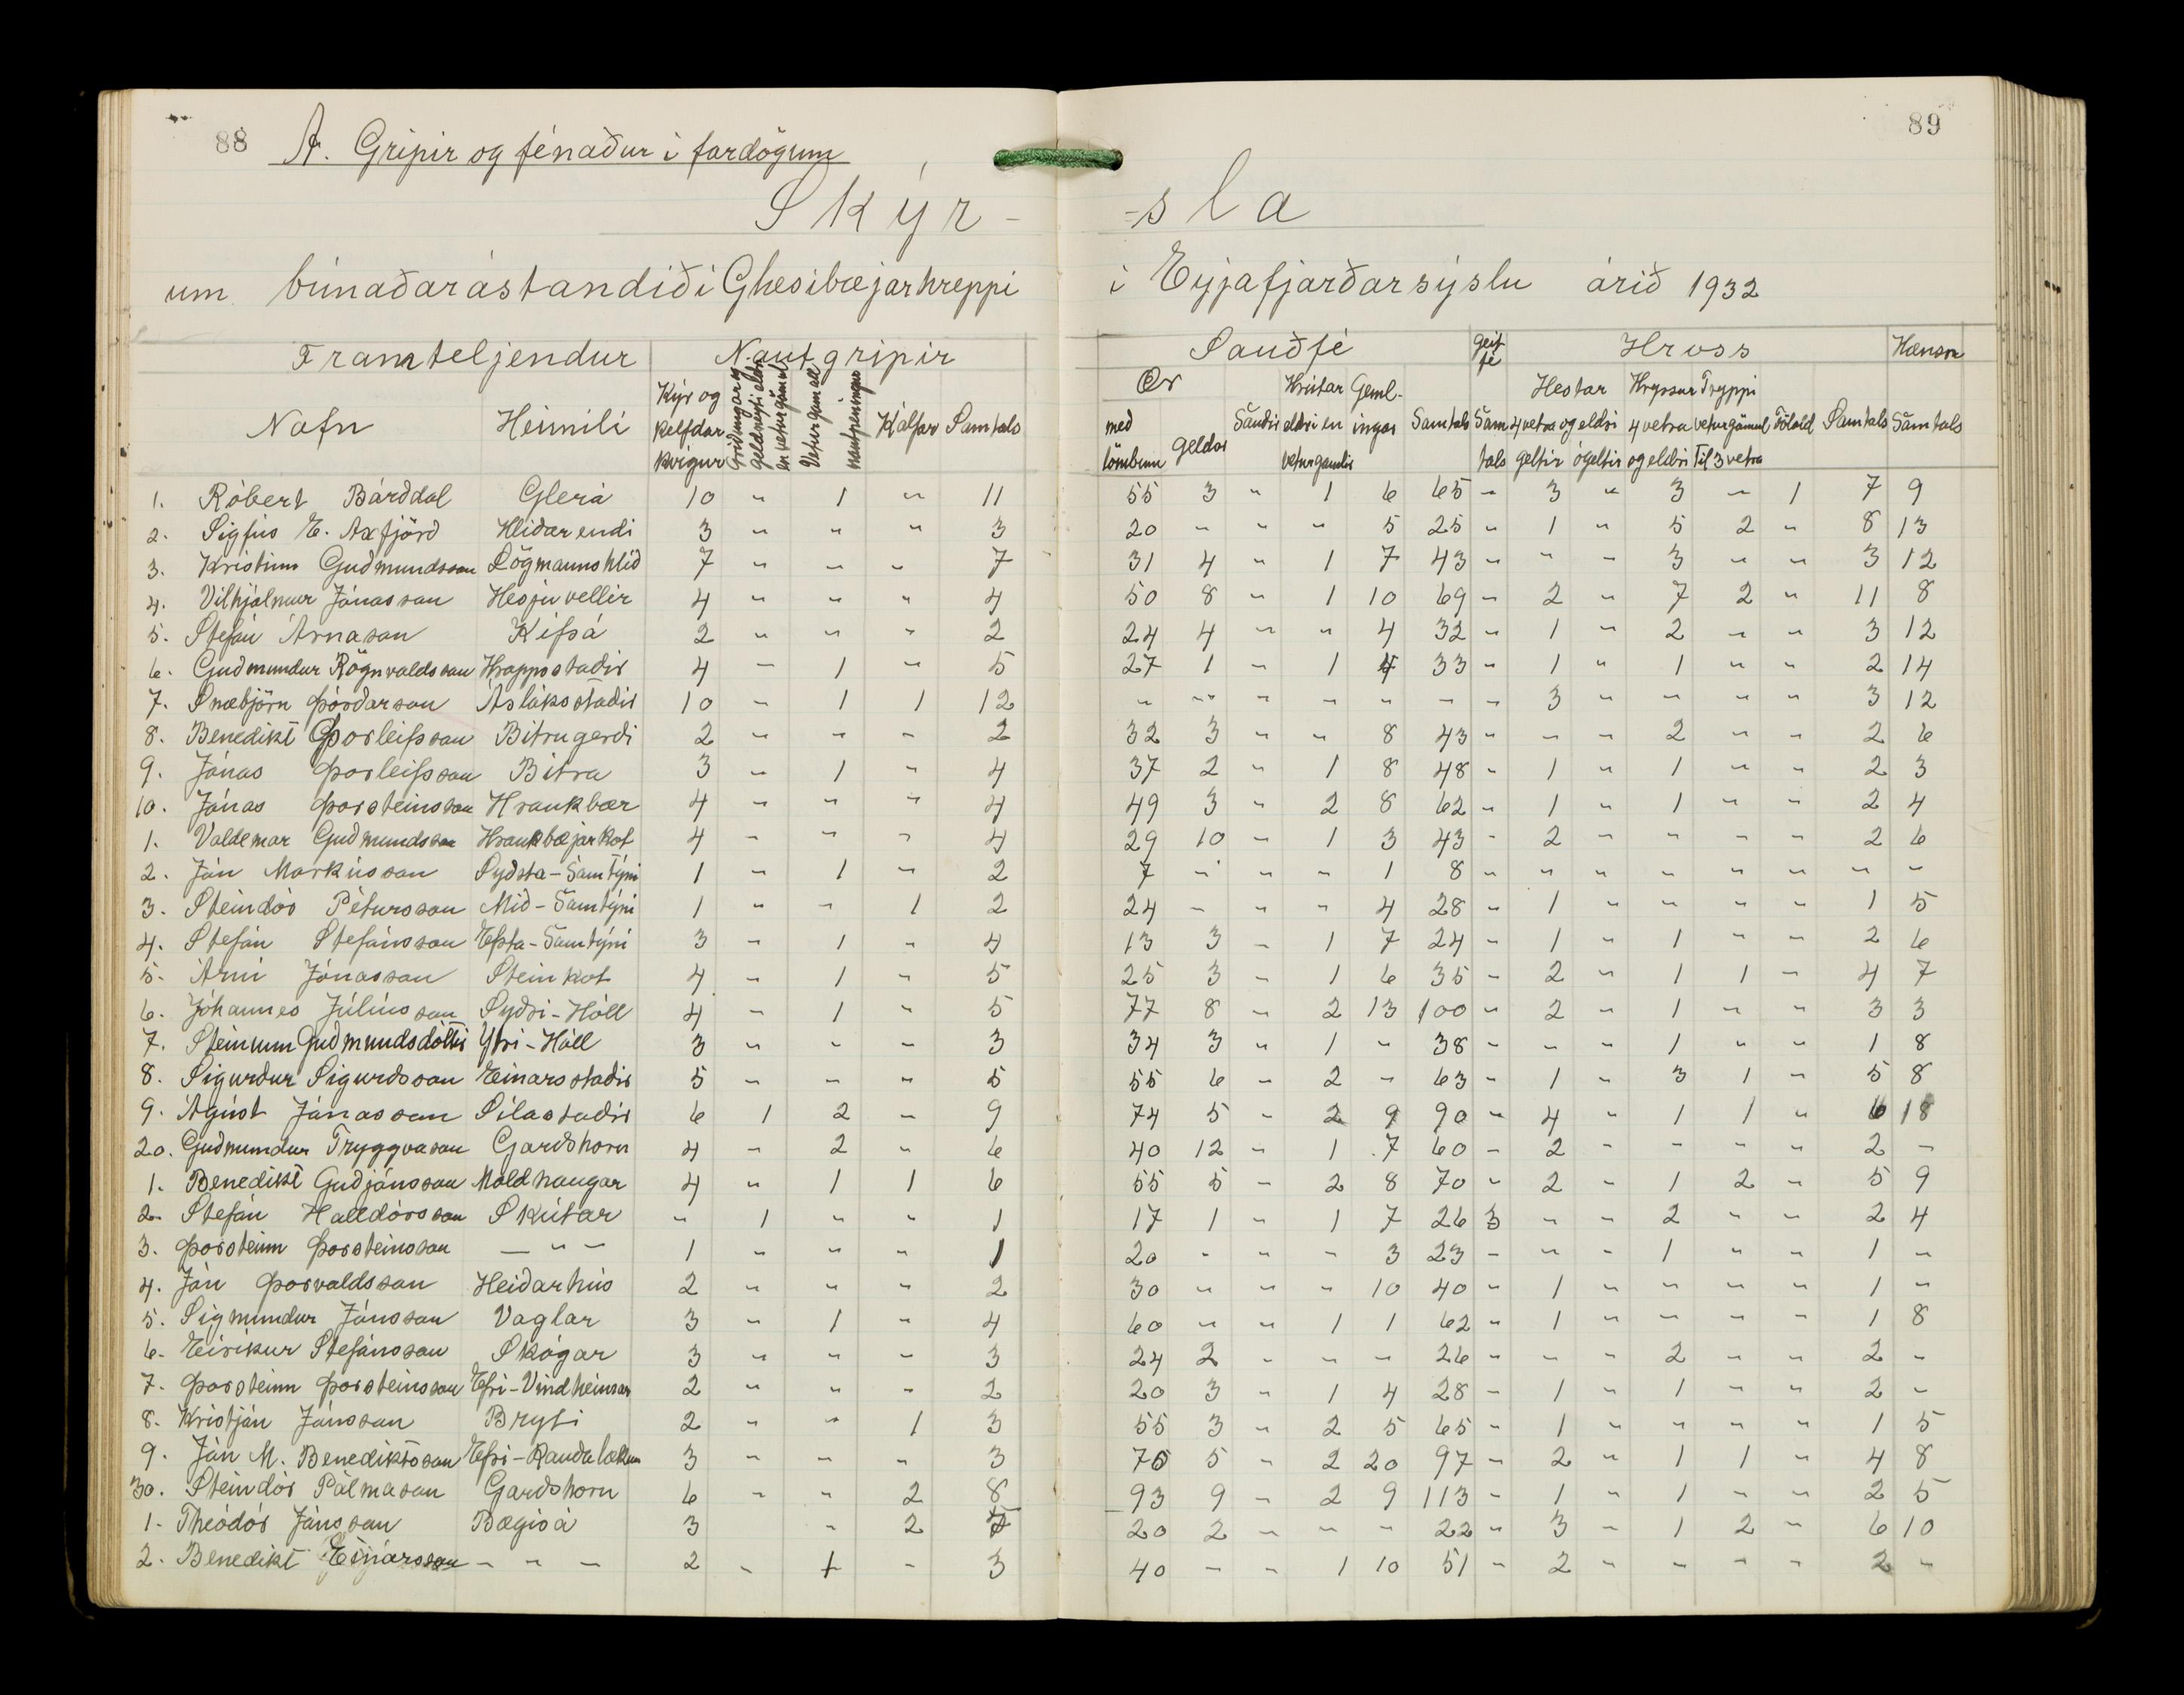 88 A. Gripir og fénaður í fardögum
89
Skýr-
-sla
um búnaðarástandið í Glæsibæjarhreppi
í Eyjafjarðarsýslu árið 1932
Framteljendur Nautgripir
Sauðfé Geitfé Hross Hænsn
Nafn Heimili Kýr og kelfdar kvígur Griðungar og geldneyti eldri en veturgömul Veturgamall nautpeningur Kálfar Samtals
Ær með lömbum Geldar Sauðir Hrútar eldri en veturgamlir Gemlingar Samtals Samtals Hestar 4 vetra og eldri geltir ógeltir Hryssur 4 vetra og eldri Tryppi veturgömul til 3 vetra Fölöld Samtals Samtals
1. Róbert Bárðdal Glerá 10 " 1 " 11 55 3 " 1 6 65 " 3 " 3 " 1 7 9
2. Sigfús E. Axfjörð Hlíðarendi 3 " " " 3 20 " " " 5 25 " 1 " 5 2 " 8 13
3. Kristinn Guðmundsson Lögmannshlíð 7 " " " 7 31 4 " 1 7 43 " " " 3 " " 3 12
4. Vilhjálmur Jónasson Hesjuvellir 4 " " " 4 50 8 " 1 10 69 " 2 " 7 2 " 11 8
5. Stefán Árnason Kífsá 2 " " " 2 24 4 " " 4 32 " 1 " 2 " " 3 12
6. Guðmundur Rögnvaldsson Hrappsstaðir 4 " 1 " 5 27 1 " 1 4 33 " 1 " 1 " " 2 14
7. Snæbjörn Þórðarson Ásláksstaðir 10 " 1 1 12 " " " " " " " 3 " " " " 3 12
8. Benedikt Þorleifsson Bitrugerði 2 " " " 2 32 3 " " 8 43 " " " 2 " " 2 6
9. Jónas Þorleifsson Bitra 3 " 1 " 4 37 2 " 1 8 48 " 1 " 1 " " 2 3
10. Jónas Þorsteinsson Hraukbær 4 " " " 4 49 3 " 2 8 62 " 1 " 1 " " 2 4
1. Valdemar Guðmundsson Hraukbæjarkot 4 " " " 4 29 10 " 1 3 43 " 2 " " " " 2 6
2. Jón Markússon Syðsta-Samtýni 1 " 1 " 2 7 " " " 1 8 " " " " " " " "
3. Steindór Pétursson Mið-Samtýni 1 " " 1 2 24 " " " 4 28 " 1 " " " " 1 5
4. Stefán Stefánsson Efsta-Samtýni 3 " 1 " 4 13 3 " 1 7 24 " 1 " 1 " " 2 6
5. Árni Jónasson Steinkot 4 " 1 " 5 25 3 " 1 6 35 " 2 " 1 1 " 4 7
6. Jóhannes Júlíusson Syðri-Hóll 4 " 1 " 5 77 8 " 2 13 100 " 2 " 1 " " 3 3
7. Steinunn Guðmundsdóttir Ytri-Hóll 3 " " " 3 34 3 " 1 " 38 " " " 1 " " 1 8
8. Sigurður Sigurðsson Einarsstaðir 5 " " " 5 55 6 " 2 " 63 " 1 " 3 1 " 5 8
9. Ágúst Jónasson Sílastaðir 6 1 2 " 9 74 5 " 2 9 90 " 4 " 1 1 " 6 18
20. Guðmundur Tryggvason Garðshorn 4 " 2 " 6 40 12 " 1 7 60 " 2 " " " " 2 "
1. Benedikt Guðjónsson Moldhaugar 4 " 1 1 6 55 5 " 2 8 70 " 2 " 1 2 " 5 9
2. Stefán Halldórsson Skútar " 1 " " 1 17 1 " 1 7 26 3 " " 2 " " 2 4
3. Þorsteinn Þorsteinsson — " — 1 " " " 1 20 " " " 3 23 " " " 1 " " 1 "
4. Jón Þorvaldsson Heiðarhús 2 " " " 2 30 " " " 10 40 " 1 " " " " 1 "
5. Sigmundur Jónsson Vaglar 3 " 1 " 4 60 " " 1 1 62 " 1 " " " " 1 8
6. Eiríkur Stefánsson Skógar 3 " " " 3 24 2 " " " 26 " " " 2 " " 2 "
7. Þorsteinn Þorsteinsson Efri-Vindheimar 2 " " " 2 20 3 " 1 4 28 " 1 " 1 " " 2 "
8. Kristján Jónsson Bryti 2 " " 1 3 55 3 " 2 5 65 " 1 " " " " 1 5
9. Jón M. Benediktsson Efri-Rauðalækur 3 " " " 3 70 5 " 2 20 97 " 2 " 1 1 " 4 8
30. Steindór Pálmason Garðshorn 6 " " 2 8 93 9 " 2 9 113 " 1 " 1 " " 2 5
1. Theódór Jónsson Bægisá 3 " 2 5 20 2 " " " 22 " 3 " 1 2 " 6 10
2. Benedikt Einarsson — " — 2 " 1 " 3 40 " " 1 10 51 " 2 " " " " 2 "